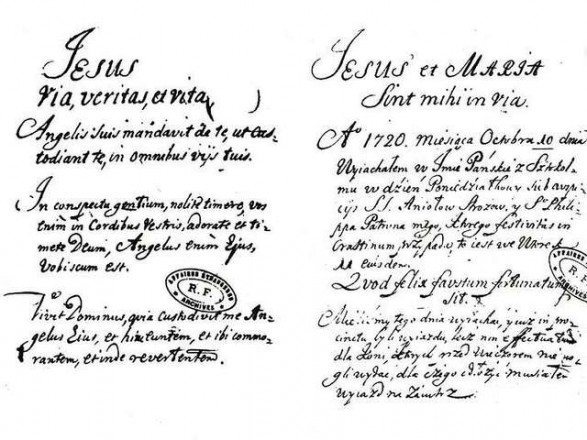 Jesus
Via, veritas, et vita
Angelis suis mandavit de te, ut Cus-
todiant te, in omnibus vijs tuis.
In conspectu gentium, nolite timere, vos
enim in Cordibus Vestris, adorate et ti-
mete Deum, Angelus enim Ejus,
Vobiscum est.
AFFAIRES ETRANGERES
R.F.
ARCHIVES
Vivit Dominus, quia Custodivit me An-
gelus Ejus, et hinc euntem, et ibi commo-
rantem, et inde revertentem.
Jesus et Maria
Sint mihi in via.
Aº 1720. Miesiąca Octobra 10 dnia
Wyiachałem w Imie Pańskie z
mu w dzień Poniedziałkowy sub auspi-
cijs SS. Aniołow Strozow, y S. Philip-
pa Patrona mego, ktorego festivitas in
Crastinum, to iest we Wtorek
11 eiusdem.
Quod felix faustum fortunatum
sit.
my tego dnia wyiachać, y iuż in pro-
cinctu byli wyiazdu, lecz non
dla koni, ktorych przed Wieczorem nie mo-
gli wydać, dla czego
wyiazd na